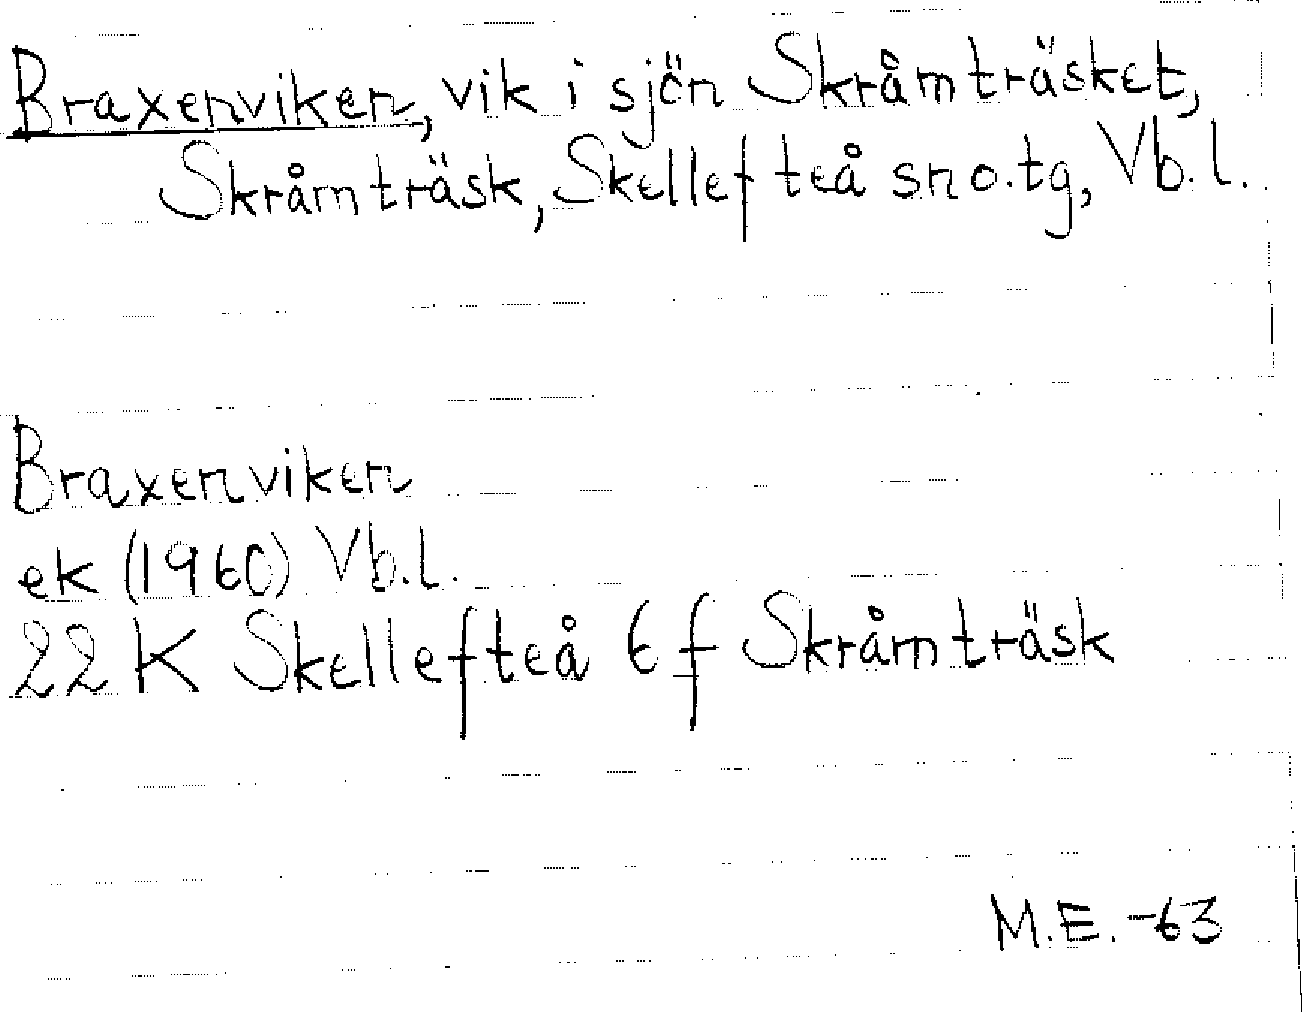 Braxenviken, vik i sjön Skråmträsket,
Skråmträsk, Skellefteå sn o. tg, Vb.l.
Braxenviken
ek (1960) Vb.l.
22 K Skellefteå 6 f Skråmträsk
M.E. -63